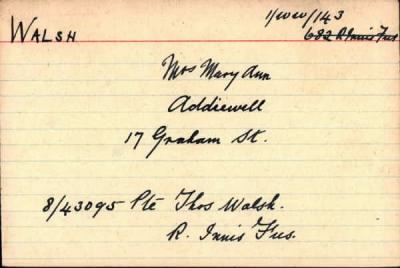 WALSH
/143
682 R Innis Fus
Mrs Mary Ann
Addiewell
17 Graham St.
8/43095 Pte Thos Walsh.
R. Innis Fus.